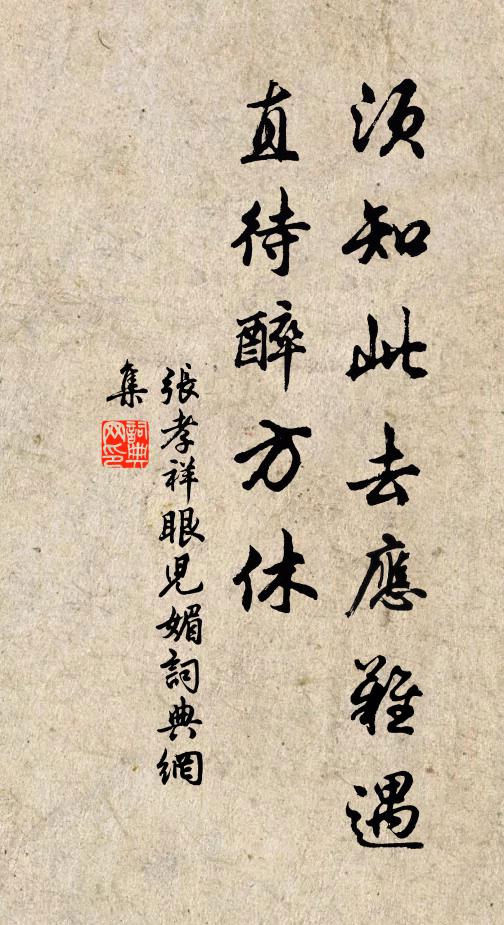 須知此去應難遇
直待醉方休
張孝祥眼兒媚詞典網
集
詞典
网印